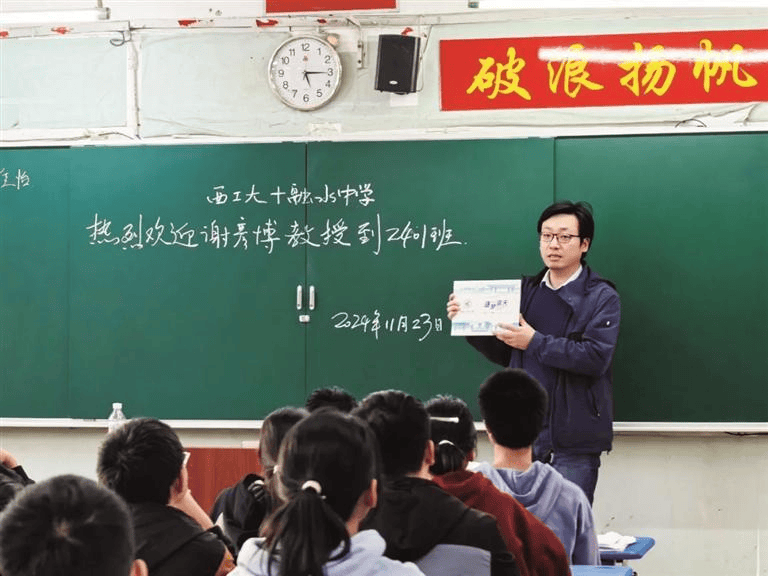 破浪扬帆
西工大+融水中学
热烈欢迎谢彦博教授到2401班.
2024年11月23日